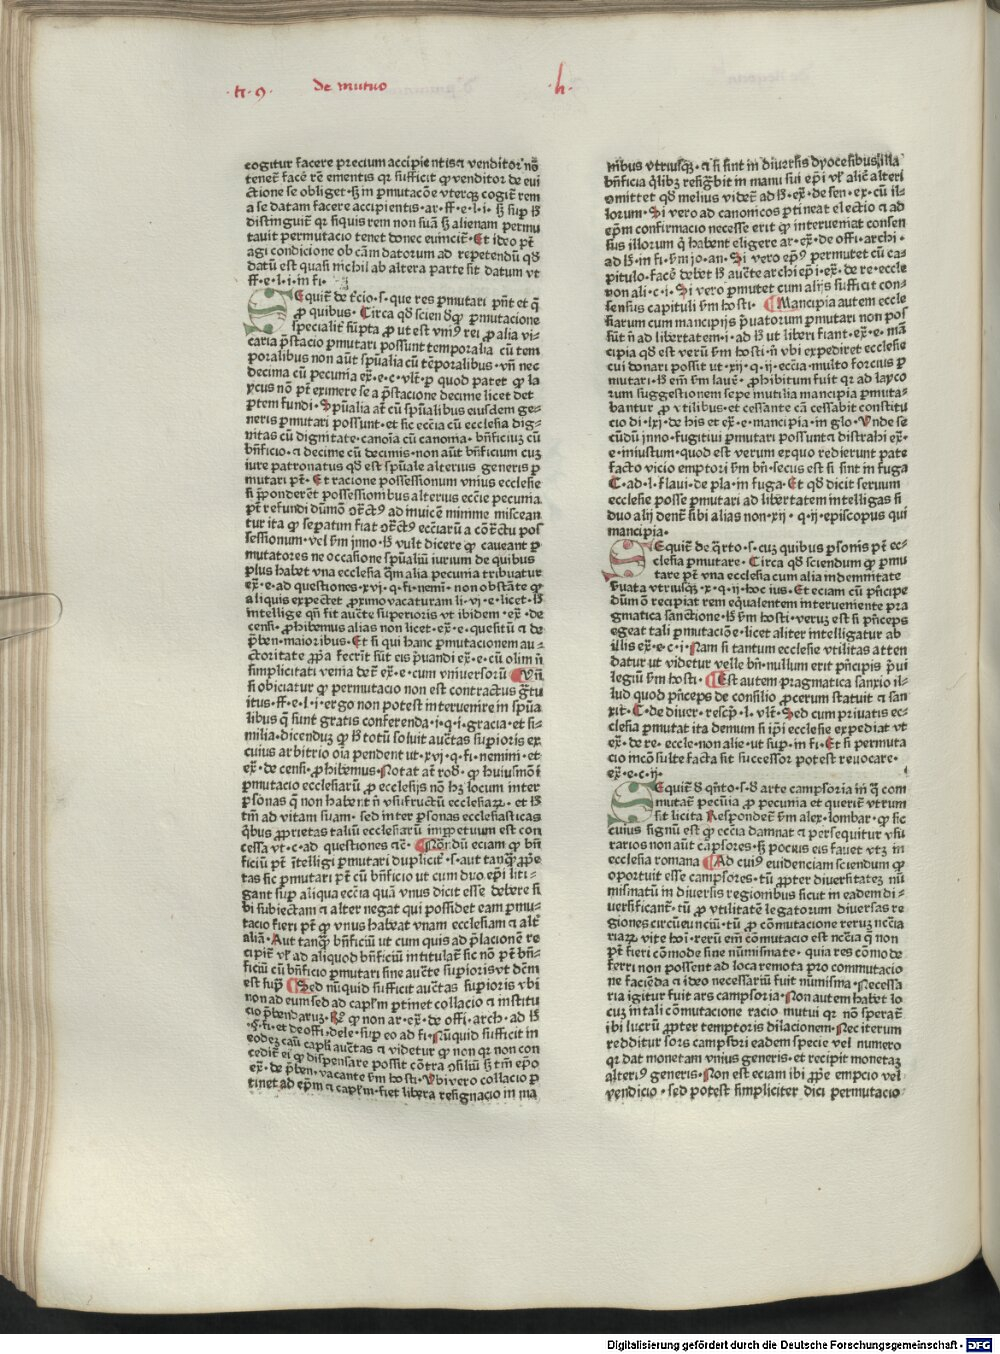 ·ti·9· de mutuo ·h·
cogitur facere precium accipientis ⁊ venditor nō
tenet᷑ facē rē ementis qr sufficit ꝙ venditor de eui
ctione se obliget·ſꝫ in ꝑmutacōe vterqꝫ cogit᷑ rem
a se datam facere accipientis·ar·ff·e·l·i·
distinguit᷑ qr siquis rem non suā ſꝫ alienam permu
tauit permutacio tenet donec euincit᷑·Et ideo pt᷑
agi condicione ob cām datorum ad repetendū qd̄
datū est quasi nichil ab altera parte sit datum vt
ff·e·l·i·in fi·
SEquit᷑ de t̄cio·s·que res ꝑmutari pn̄t et q̄
ꝓ quibus·Circa qd̄ sciendū ꝙ ꝑmutacione
specialit᷑ sūpta ꝓ ut est vni⁹ rei ꝓ alia vi
caria p̄stacio ꝑmutari possunt temporalia cū tem
poralibus non aūt spūalia cū tēporalibus·vn̄ nec
decima cū pecunia ex̄·e·c·vlt᷑·ꝑ quod patet ꝙ la
ycus nō pt᷑ eximere se a p̄stacione decime licet det
ꝑtem fundi·Spūalia at᷑ cū spūalibus eiusdem ge⸗
neris ꝑmutari possunt·et sic eccīa cū ecclesia dig⸗
nitas cū dignitate·canoīa cū canonia·bn̄ficiū cū
bn̄ficio·⁊ decime cū decimis·non aūt bn̄ficium cuꝫ
iure patronatus qd̄ est spūale alterius generis ꝑ
mutari pt᷑·Et racione possessionum vnius ecclesie
si p̄ponderēt possessiombus alterius eccīe pecunia
pt᷑ refundi dūmō
tur ita ꝙ sepatim fiat ɔ̄tract⁹ ecciarū a cōtractu pos
sessionum·vel ẜm jnno·lꝫ vult dicere ꝙ caueant ꝑ
mutatores ne occasione spūaliū iurium de quibus
plus habet vna ecclesia q̄m alia pecunia tribuatur
ex̄·e·ad questiones·xvi·q·fi·nemī·non obstāte ꝙ
aliquis expectet ꝓximo vacaturam li·vi·e·licet·lꝫ
intellige qn̄ fit aucte superioris vt ibidem·ex̄·de
censi·ꝓhibemus alias non licet·ex̄·e·quesitū ⁊ de
p̄ben·maioribus·Et si qui hanc ꝑmutacionem au⸗
ctoritate ꝓpa fecrīt sūt eis p̄uandi ex̄·e·cū olim n̄
simplicitati venia det᷑ ex̄·e·cum vniuersorū ¶Vn̄
si obiciatur ꝙ permutacio non est contractus g̃tu
itus·ff·e·l·i·ergo non potest interuenire in spūa
libus q̄ sunt gratis conferenda·i·q·i·gracia·et si⸗
milia·dicenduꝫ ꝙ lꝫ totū soluit auctas supioris ex
cuius arbitrio oīa pendent ut·xvi·q·fi·nemini·et
ex̄·de censi·ꝓhibemus·Notat at᷑ rod̄·ꝙ huiusmōi
ꝑmutacio ecclesiarū ꝓ ecclesijs nō hꝫ locum inter
ꝑsonas q̄ non habent n̄ vsufructū ecclesiaꝝ·et lꝫ
tm̄ ad vitam suam·sed inter ꝑsonas ecclesiasticas
q̄bus ꝓprietas taliū ecclesiarū imꝑpetuum est con
cessa vt·c·ad questiones ⁊c̄· ¶Nōn dū eciam ꝙ bn̄
ficiū pt᷑ ītelligi ꝑmutari duplicit᷑·s·aut tanqꝫ ꝓpe
tas sic ꝑmutari pt᷑ cū bn̄ficio ut cum duo epī liti⸗
gant sup aliqua eccīa quā vnus dicit esse debere si
bi subiectam ⁊ alter negat qui possidet eam ꝑmu⸗
tacio fieri pt᷑ ꝙ vnus habeat vnam ecclesiam ⁊ alt᷑
aliā·Aut tanqꝫ bn̄ficiū ut cum quis ad p̄lacionē re
cipit᷑ vl̄ ad aliquod bn̄ficiū intitulat᷑ sic nō pt᷑ bn̄⸗
ficiū cū bn̄ficio ꝑmutari sine aucte supioris vt dcm̄
est sup̄ ¶Sed nūquid sufficit auctas supioris vbi
non ad eum sed ad capl̄m ꝑtinet collacio ⁊ institu
cio p̄bendaruꝫ·Rō ꝙ non ar·ex̄·de offi·arch·ad lꝫ
·§·fi·et de offi·dele·sup eo ad fi·Nūquid sufficit in
eodeꝫ cāu capli auctas ⁊ videtur ꝙ non qr non con
cedit᷑ ei ꝙ dispensare possit cōtra ɔsiliū ſꝫ tm̄ epō
ex̄·de p̄ben·vacante ẜm hosti·Vbi vero collacio ꝑ
tinet ad epm̄ ⁊ capl̄m·fiet libera resignacio in ma
nibus vtriusqꝫ·⁊ si sint in diuersis dyocesibus illa
bn̄ficia q̄libꝫ resigbit in manu sui epī vl̄ alie alteri
omittet qd̄ melius videt᷑ ad lꝫ·ex̄·de sen·ex·cū il⸗
lorum·Si vero ad canonicos ꝑtineat electio ⁊ ad
epm̄ confirmacio necesse erit ꝙ interueniat consen
sus illorum q̄ habent eligere ar·ex̄·de offi·archi·
ad lꝫ·in fi·ẜm jo·an·Si vero ep̄⁹ permutet cū ca⸗
pitulo·facē debet lꝫ aucte archiepī·ex̄·de re·eccle
non ali·c·i·Si vero ꝑmutet cum alijs sufficit con⸗
sensus capituli ẜm hosti· ¶Mancipia autem eccle
siarum cum mancipijs p̄uatorum ꝑmutari non pos
sūt n̄ ad libertatem·i·ad lꝫ ut liberi fiant·ex̄·e·mā
cipia qd̄ est verū ẜm hosti·n̄ vbi expediret ecclesie
cui donari possit ut·xij·q·ij·eccīa·multo forcius ꝑ
mutari·lꝫ em̄ ẜm laur᷑·ꝓhibitum fuit qr ad layco
rum suggestionem sepe mutilia mancipia ꝑmuta⸗
bantur ꝓ vtilibus·et cessante cā cessabit constitu
cio di·lxj·de his et ex̄·e·mancipia·in glo·Vnde se
cūdū jnno·fugitiui ꝑmutari possunt ⁊ distrahi ex̄·
e·iniustum·quod est verum exquo redierunt pate
facto vicio emptori ẜm bn̄·secus est si sint in fuga
C·ad·l·flaui·de pla·in fuga·Et qd̄ dicit seruum
ecclesie posse ꝑmutari ad libertatem intelligas si
duo alij dent᷑ sibi alias non·xij·q·ij·episcopus qui
mancipia·
SEquit᷑ de q̄rto·s·cuꝫ quibus ꝑsonis pt᷑ ec⸗
clesia ꝑmutare·Circa qd̄ sciendum ꝙ ꝑmu
tare pt᷑ vna ecclesia cum alia indemnitate
ẜuata vtriusqꝫ·x·q·ij·hoc ius·Et eciam cū p̄ncipe
dūmō recipiat rem eq̄ualentem interueniente pra
gmatica sanctione·lꝫ ẜm hosti·veruꝫ est si p̄nceps
egeat tali ꝑmutaciōe·licet aliter intelligatur ab
illis ex̄·e·c·i·Nam si tantum ecclesie vtilitas atten
datur ut videtur velle bn̄·nullum erit p̄ncipis p̄ui
legiū ẜm hosti· ¶Est autem pragmatica sanxio il⸗
lud quod p̄nceps de consilio ꝓcerum statuit ⁊ san
xit·C·de diuer·resc̄p·l·vlt᷑·Sed cum priuatis ec⸗
clesia ꝑmutat ita demum si ip̄i ecclesie expediat vt
ex̄·de re·eccle·non alie·ut sup·in fi·Et si permuta
cio incōsulte facta sit successor potest reuocare·
ex̄·e·c·ij·
SEquit᷑ d̄ qn̄to·s·d̄ arte campsoria in q̄ com
mutat᷑ pecūia ꝓ pecunia et querit᷑ vtrum
sit licita Respondet᷑ ẜm alex·lombar·ꝙ sic
cuius signū est ꝙ eccīa damnat ⁊ persequitur vsu
rarios non aūt cāpsores·ſꝫ pocius eis fauet vtꝫ in
ecclesia romana ¶Ad cui⁹ euidenciam sciendum ꝙ
oportuit esse campsores·tū ꝓpter diuersitateꝫ nū
mismatū in diuersis regionbus sicut in eadem di⸗
uersificant᷑·tū ꝓ vtilitate legatorum diuersas re
giones circueunciū·tū ꝓ cōmutacione reruꝫ nc̄cia
riaꝝ vite hoī·rerū em̄ cōmutacio est nc̄cia q̄ non
pt᷑ fieri cōmode sine nūmismate·quia res cōmode
ferri non possent ad loca remota pro commutacio
ne faciēda ⁊ ideo necessariū fuit nūmisma·Necessa
ria igitur fuit ars campsoria·Non autem habet lo
cuꝫ in tali cōmutacione racio mutui qr nō sperat᷑
ibi lucrū ꝓpter temptoris dilacionem·Nec iterum
redditur sors campsori eadem specie vel numero
qr dat monetam vnius generis·et recipit monetaꝫ
alteri⁹ generis·Non est eciam ibi ꝓpe empcio vel
vendicio·sed potest simpliciter dici permutacio
Digitalisierung gefördert durch die Deutsche Forschungsgemeinschaft - DFG